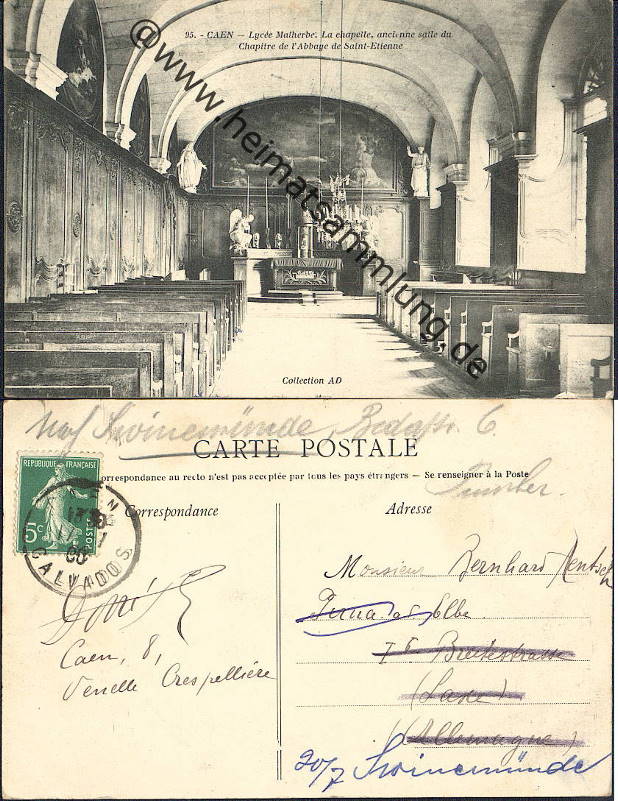 95. - CAEN - Lycée Malherbe. La chapelle, ancienne salle du
Chapitre de l'Abbaye de Saint-Etienne
@www.heimatsammlung.de
Collection AD
Nach Swinemünde, 6.
CARTE POSTALE
Correspondance au recto n'est pas acceptée par tous les pays étrangers - Se renseigner à la Poste
REPUBLIQUE FRANÇAISE
5c
POSTES
CAEN
CALVADOS
Correspondance
Adresse
Monsieur Bernhard
Pirna a/ Elbe
Breitestrasse
(Saxe)
(Allemagne)
20/7 Swinemünde
Caen, 8,
Venelle Crespellière